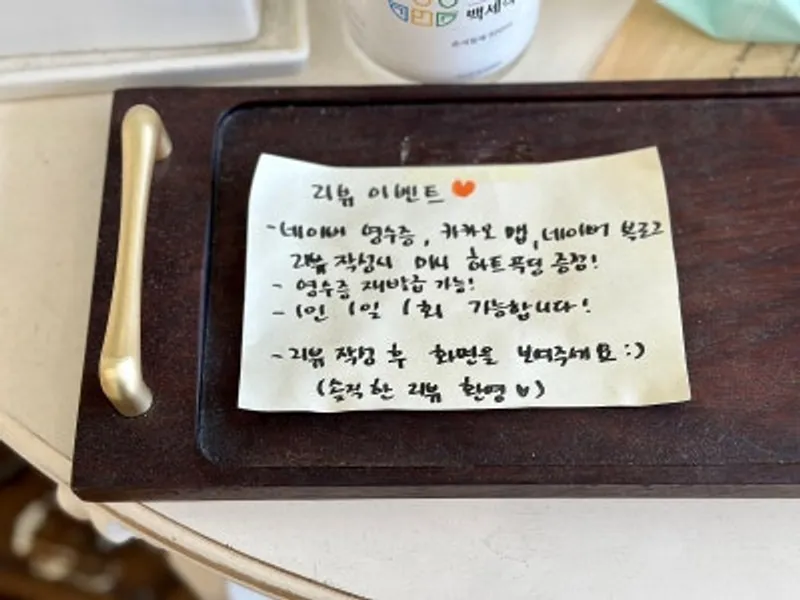 백세
리뷰 이벤트
- 네이버 영수증, 카카오 맵, 네이버 블로그
리뷰 작성시 미니 하트푹딩 증정!
- 영수증 재발급 가능!
- 1인 1일 1회 가능합니다!
- 리뷰 작성 후 화면을 보여주세요 :)
(솔직한 리뷰 환영)